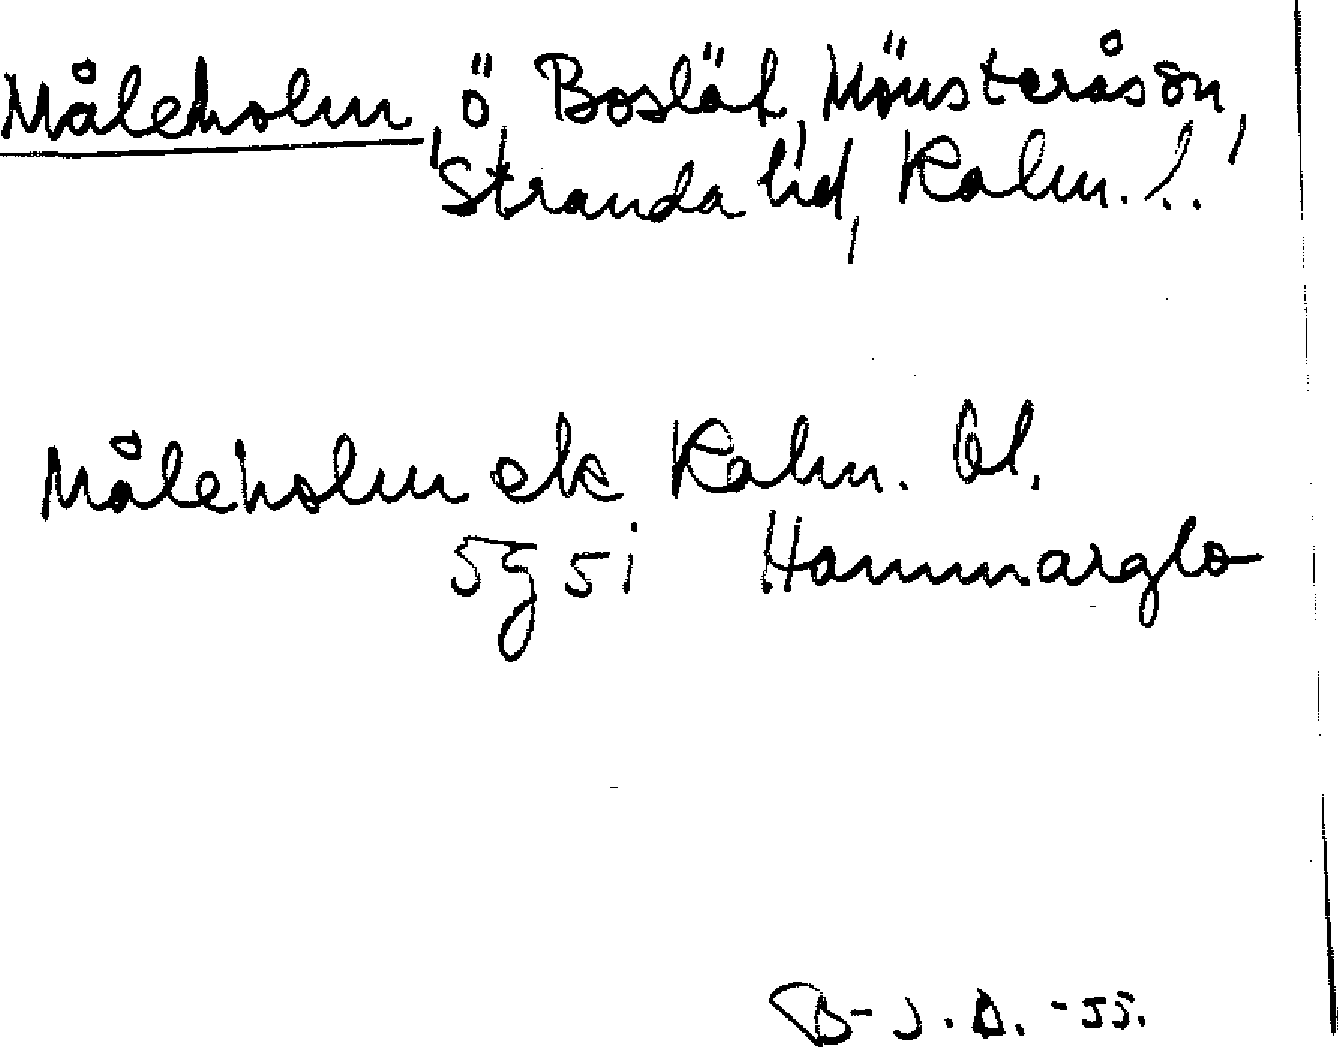 Måleholm, ö, Boslät, Mönsterås sn,
Stranda hd, Kalm. l.
Måleholm ek Kalm. bl.
5g 5i Hammarglo
B-J.A. -55.